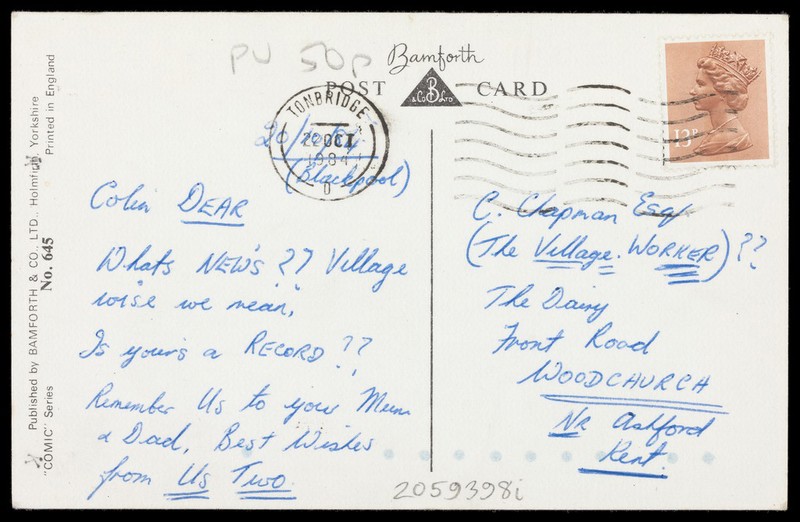 PU 50p
Bamforth
POST CARD
B
& Co Ltd
13P
TONBRIDGE
22 OCT
1984
D
20/10/84
(Blackpool)
Colin DEAR
Whats NEW'S ?? Village
wise we mean,
Is your's a RECORD ??
Remember Us to your Mum
& Dad, Best Wishes
from Us Two.
C. Chapman Esq
(The Village. WORKER) ??
The Dairy
Front Road
WOODCHURCH
Nr Ashford
Kent.
2059398i
Published by BAMFORTH & CO., LTD., Holmfirth, Yorkshire
"COMIC" Series No. 645 Printed in England